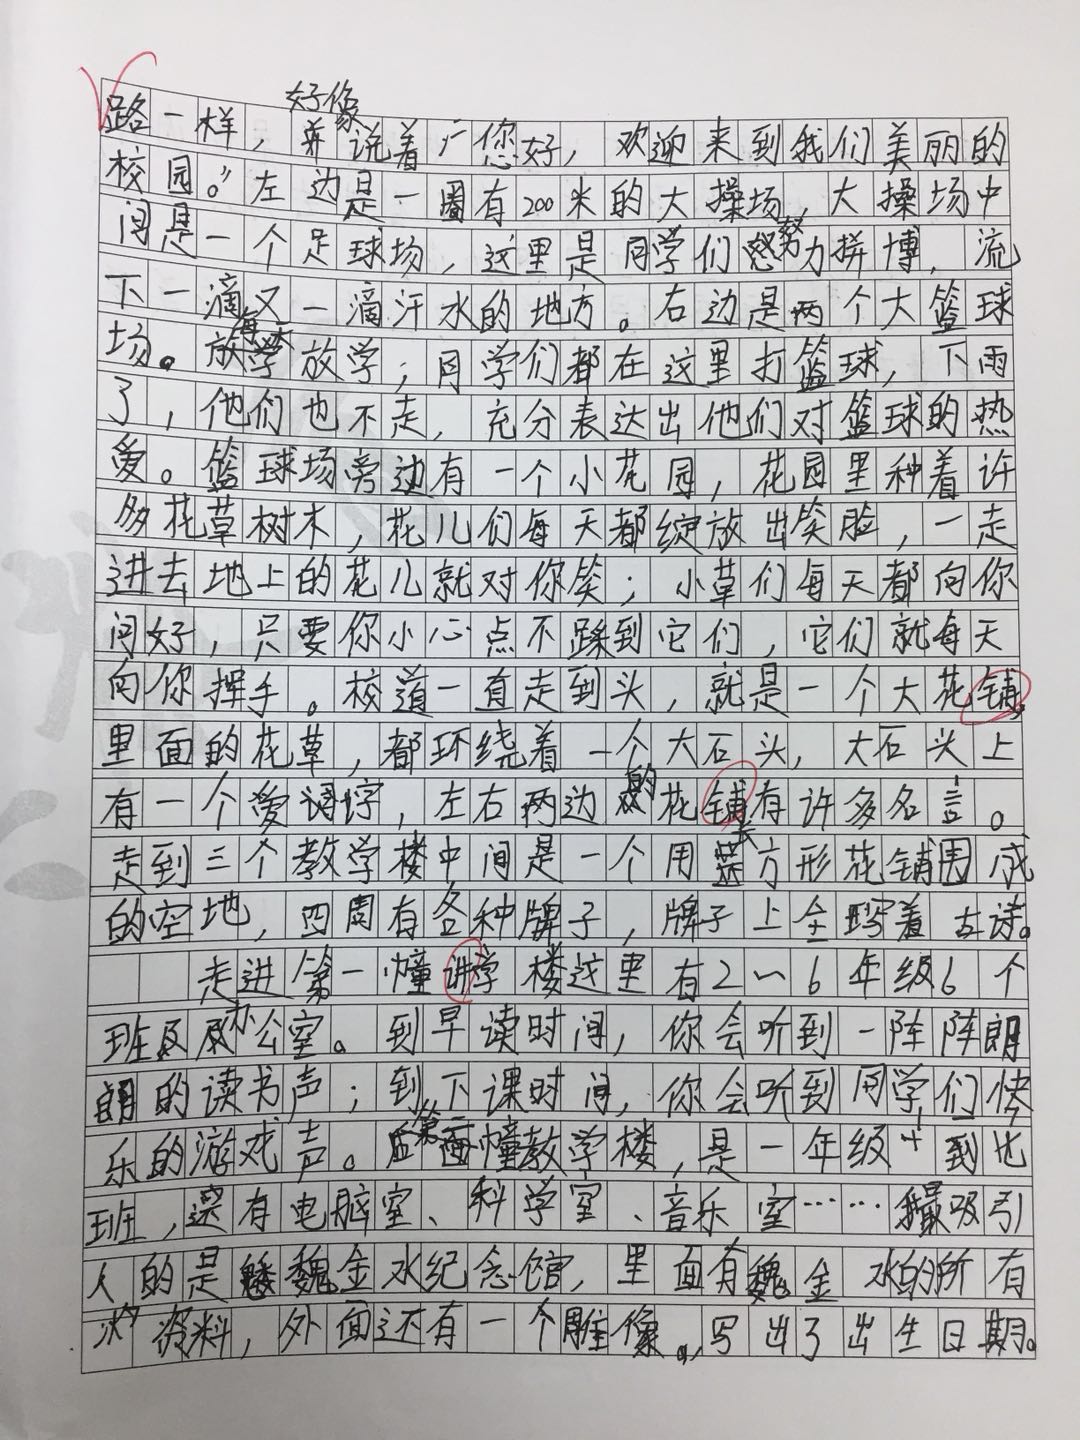 好像
路一样，并说着“您好，欢迎来到我们美丽的
校园。”左边是一圈有200米的大操场，大操场中
间是一个足球场，这里是同学们努力拼博，流
下一滴又一滴汗水的地方。右边是两个大篮球
场。每天放学，同学们都在这里打篮球，下雨
了，他们也不走，充分表达出他们对篮球的热
爱。篮球场旁边有一个小花园，花园里种着许
多花草树木，花儿们每天都绽放出笑脸，一走
进去地上的花儿就对你笑；小草们每天都向你
问好，只要你小心点不踩到它们，它们就每天
向你挥手。校道一直走到头，就是一个大花铺。
里面的花草，都环绕着一个大石头，大石头上
有一个爱字，左右两边的花铺有许多名言。
走到三个教学楼中间是一个用长方形花铺围成
的空地，四周有各种牌子，牌子上全写着古诗。
走进第一幢讲学楼这里有2～6年级6个
班及办公室。到早读时间，你会听到一阵阵朗
朗的读书声；到下课时间，你会听到同学们快
乐的游戏声。第二幢教学楼，是一年级十到七
班，还有电脑室、科学室、音乐室……最吸引
人的是魏金水纪念馆，里面有魏金水的所有
资料，外面还有一个雕像，写出了出生日期。